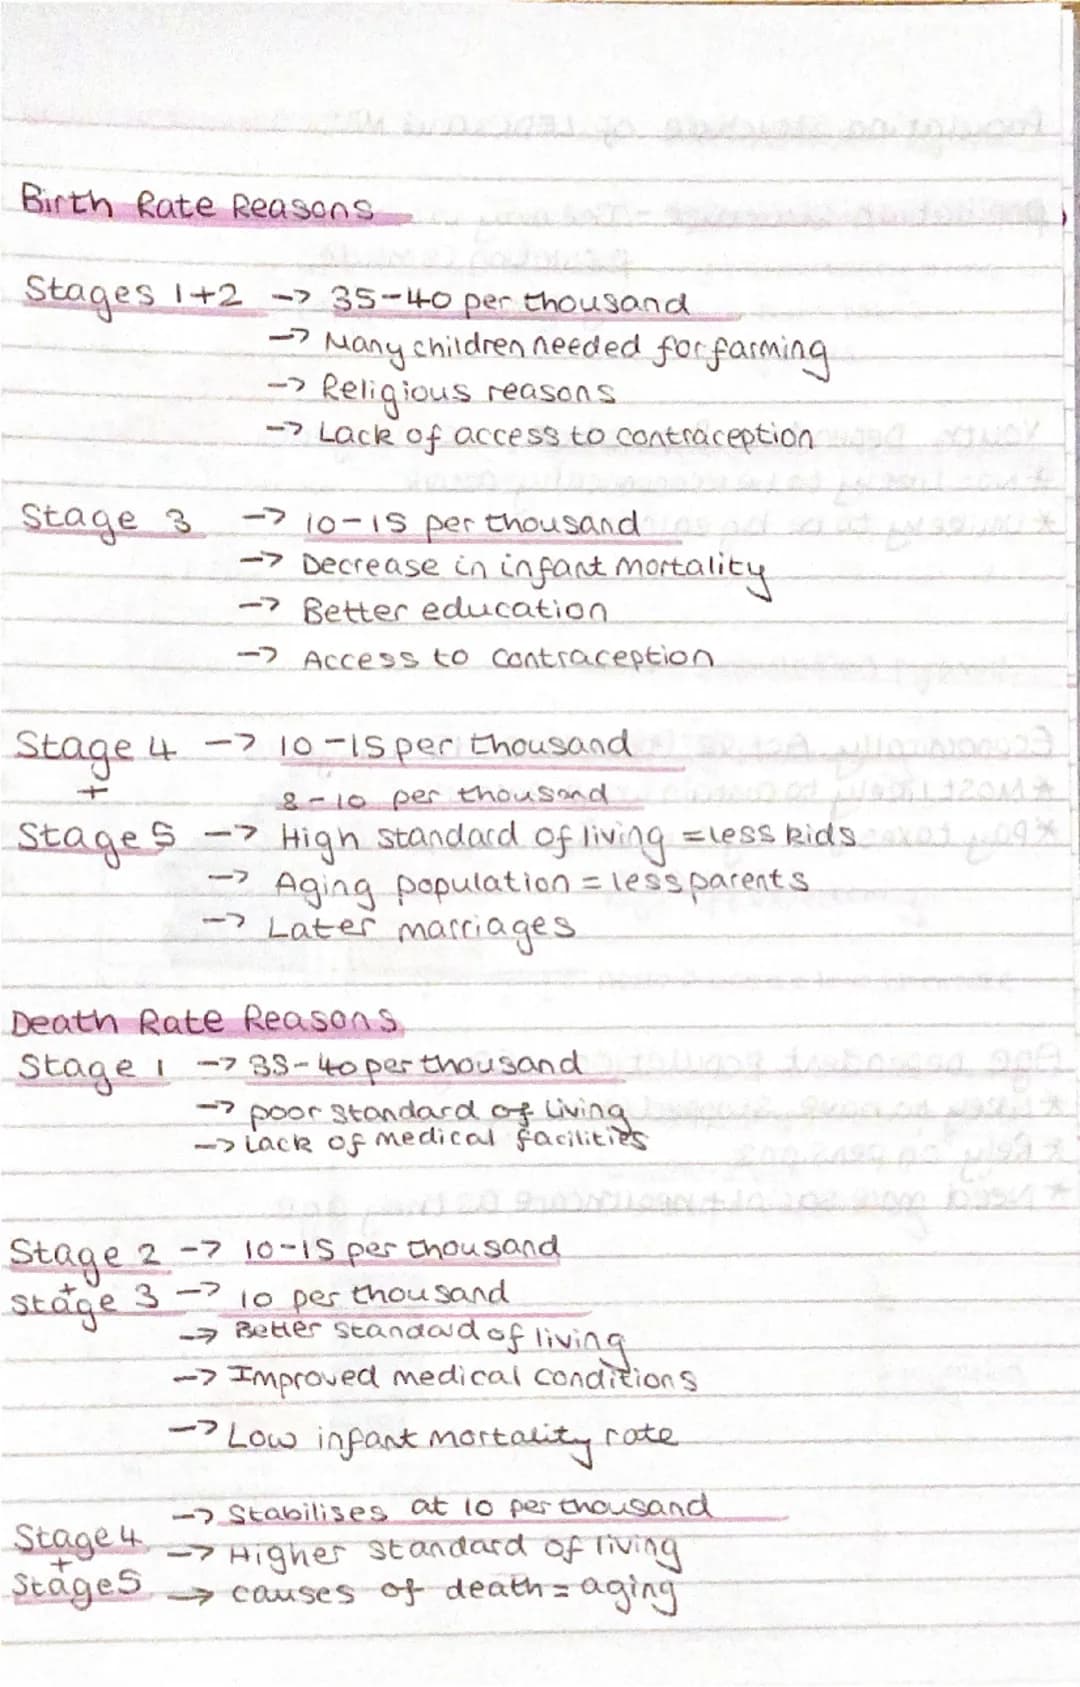 Birth Rate Reasons
Stages 1+2 -> 35-40 per thousand
-> Many children needed for farming
-> Religious reasons
-> Lack of access to contraception
Stage 3 -> 10-15 per thousand
-> Decrease in infant mortality
-> Better education
-> Access to contraception
Stage 4 -> 10-15 per thousand
+ 8-10 per thousand
Stage 5 -> High standard of living = less kids
-> Aging population = less parents
-> Later marriages
Death Rate Reasons
Stage 1 -> 35-40 per thousand
-> poor standard of living
-> Lack of medical facilities
Stage 2 -> 10-15 per thousand
+
Stage 3 -> 10 per thousand
-> Better standard of living
-> Improved medical conditions
-> Low infant mortality rate
-> Stabilises at 10 per thousand
Stage 4
+ -> Higher standard of living
Stage 5 -> causes of death = aging